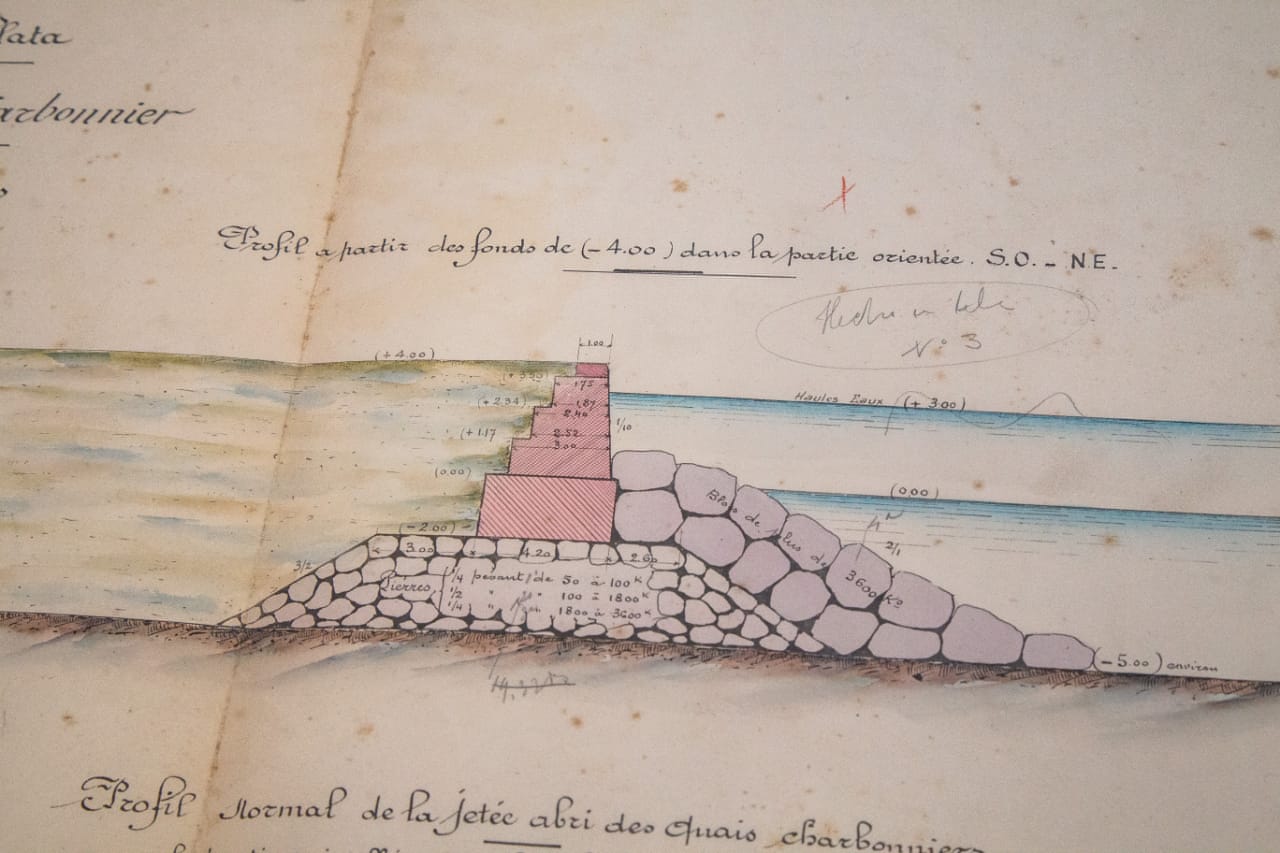 lata
arbonnier
Profil a partir des fonds de (-4.00) dans la partie orientée. S.O. - N.E.
N° 3
1.00
(+4.00)
1.75
Hautes Eaux (+3.00)
(+2.34)
1.87
2.40
1/10
(+1.17
2.52
3.00
(0.00)
(0.00)
Blocs de plus de
3600 Ks
2/1
(-2.00)
3.00
4.20
2.60
3/2
Pierres
1/4 pesant de 50 à 100 K
1/2 " " 100 à 1800 K
1/4 " 1800 à 3600 K
(-5.00) environ
Profil Normal de la jetée abri des quais charbonniers